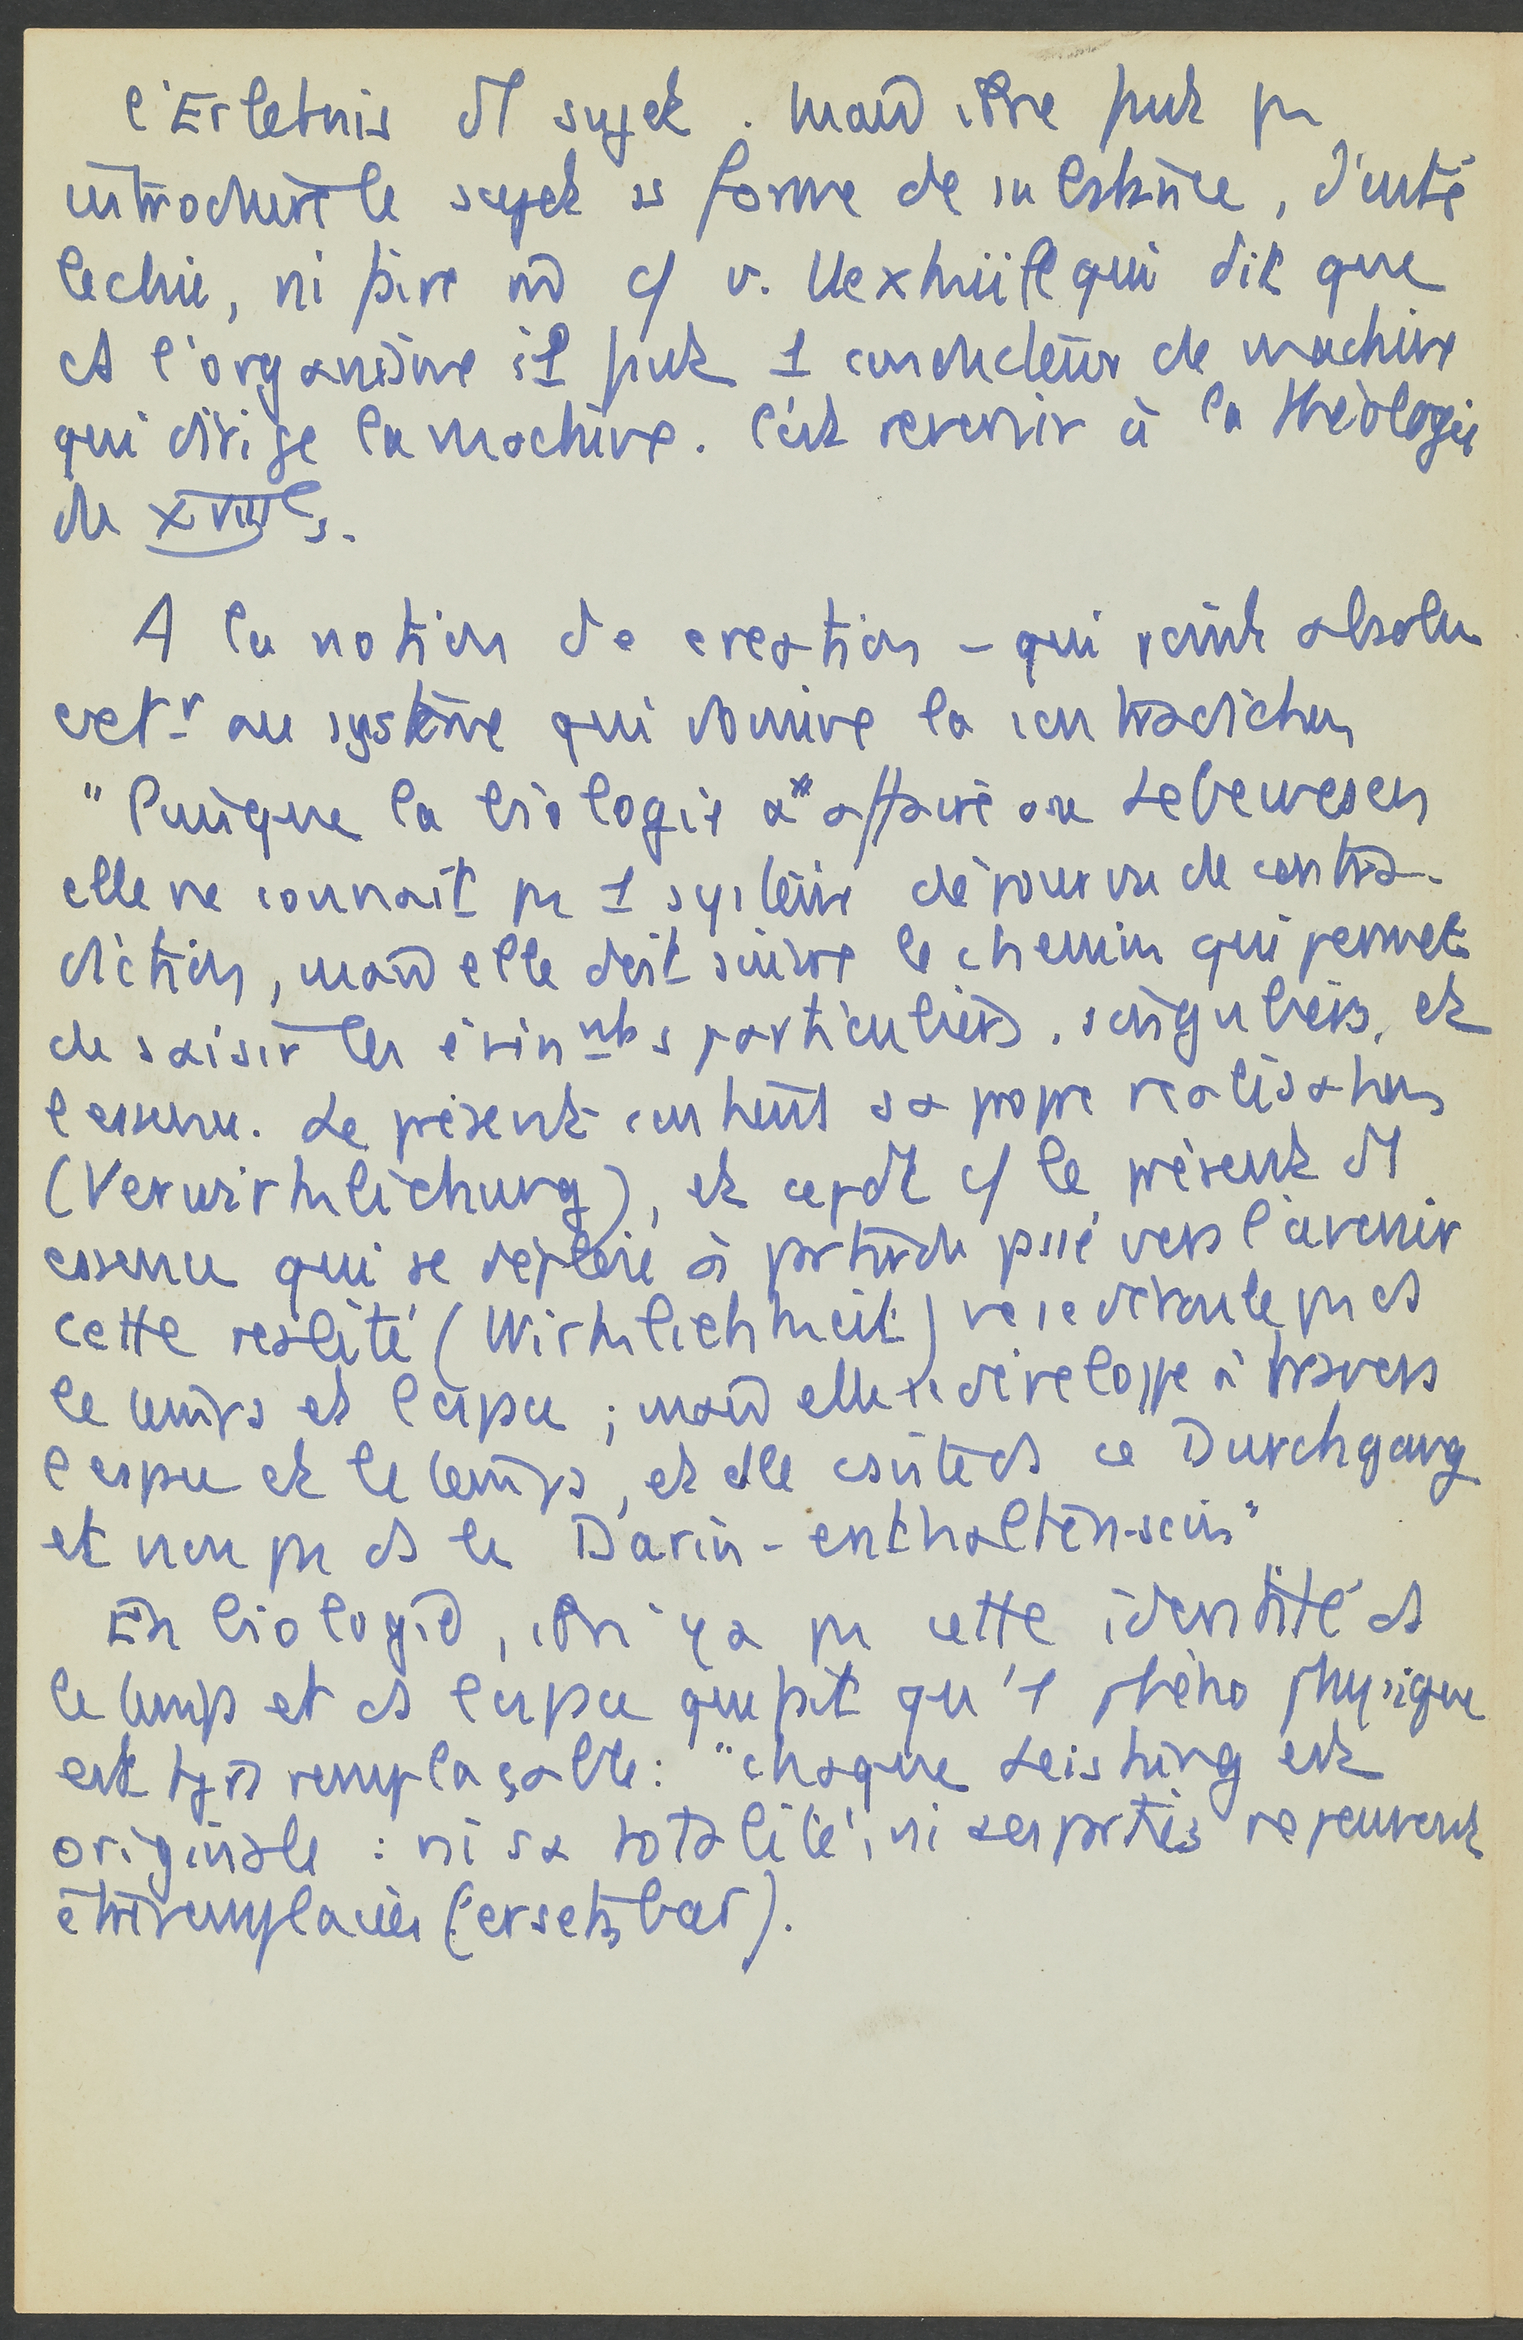 l'Erlebnis du sujet. Mais il ne faut pas
introduire le sujet ss forme de substance, d'enté
léchie, ni dire non c/ v. Uexhüll qui dit que
ds l'organisme il faut 1 conducteur de machine
qui dirige la machine. C'est revenir à la théologie
du XVIIIe s.
A la notion de creation – qui absolu
au système qui domine la contradiction
"Puisque la biologie a affaire au Lebewesen
elle ne connaît pas 1 système dépourvu de contra-
diction, mais elle doit suivre le chemin qui permet
de saisir les évènnts particuliers, singuliers, et
l'essence. Le présent contient sa propre réalisation
(Verwirhlichung), et cepdt c/ le présent du
essence qui se déploie à partir du passé vers l'avenir
cette réalité (Wirhlichheit) ne se déroule pas ds
le temps et l'espace ; mais elle se développe à travers
l'espace et le temps, et elle consiste ds ce Durchgang
et non pas ds le Darin-enthalten-sein"
En biologie, il n'y a pas cette identité ds
le temps et ds l'espace qui fait qu'1 phéno physique
est tjrs remplaçable : "chaque Leistung est
originale : ni sa totalité, ni ses parties ne peuvent
être remplacées (ersetzbar).